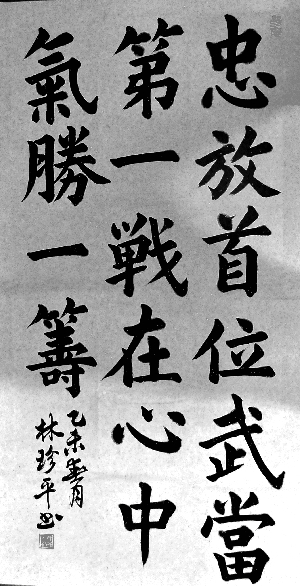 忠放首位武當
第一戦在心中
氣勝一籌
乙未年春月
林珍平書